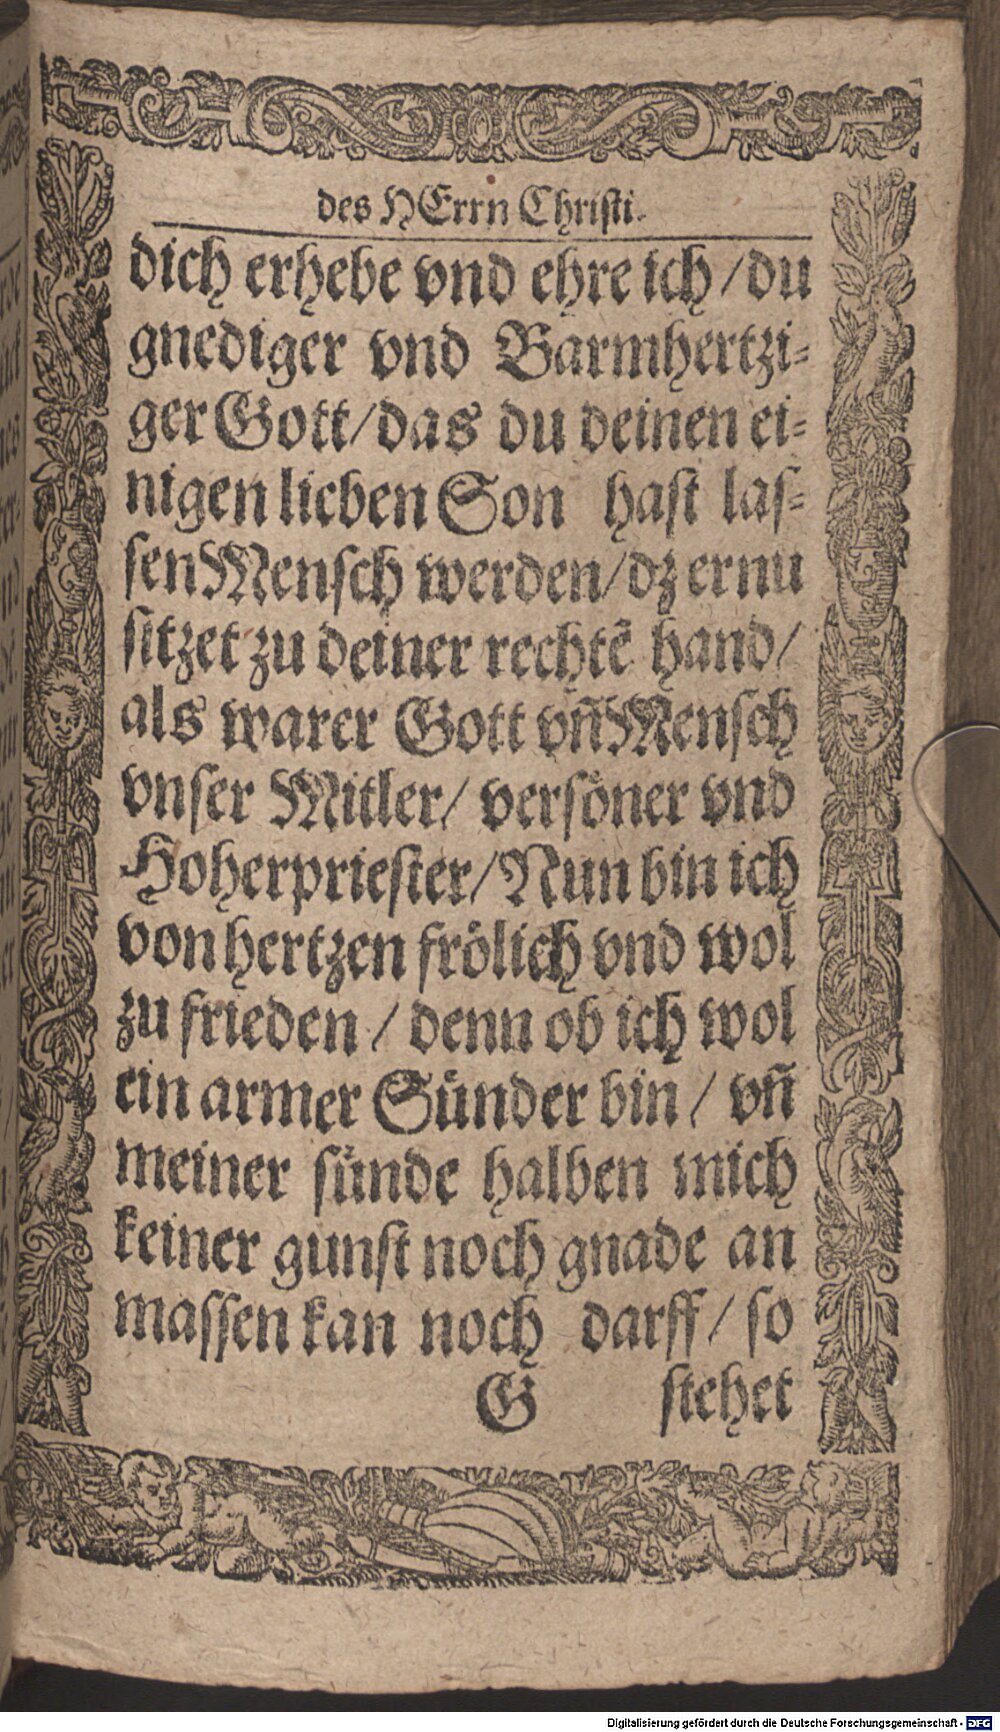 des HErrn Christi.
dich erhebe vnd ehre ich/du
gnediger vnd Barmhertzi-
ger Gott/das du deinen ei-
nigen lieben Son hast las-
sen Mensch werden/dz er nu
sitzet zu deiner rechtẽ hand/
als warer Gott vñ Mensch
vnser Mitler/ versöner vnd
Hoherpriester/Nun bin ich
von hertzen frölich vnd wol
zu frieden / denn ob ich wol
ein armer Sünder bin / vñ
meiner sünde halben mich
keiner gunst noch gnade an
massen kan noch darff/ so
G stehet
Digitalisierung gefördert durch die Deutsche Forschungsgemeinschaft - DFG